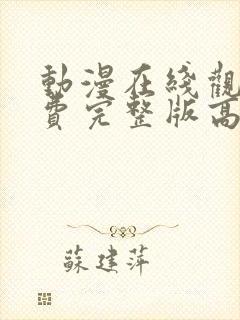 動漫在綫觀
費完整版高
蘇建萍